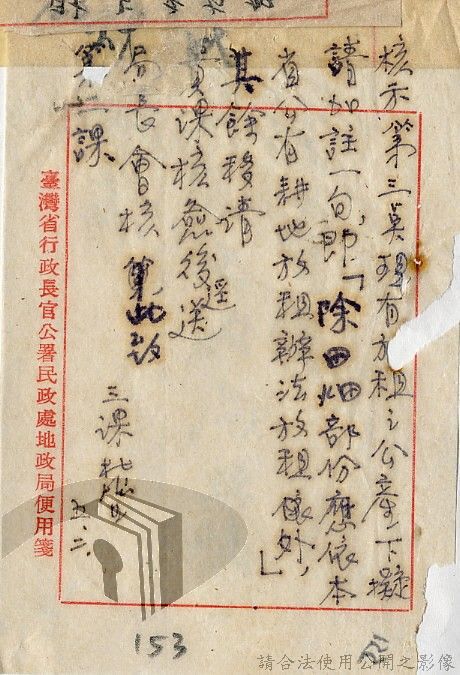 核示第三頁現有放租之公產下擬
請加註一句,即「除田畑部份應依本
省公有耕地放租辦法放租儘外,」
其餘移請
貴課核簽後還送
局長會核 第此致
第二課
三課
五、二、
臺灣省行政長官公署民政處地政局便用箋
153
請合法使用公開之影像